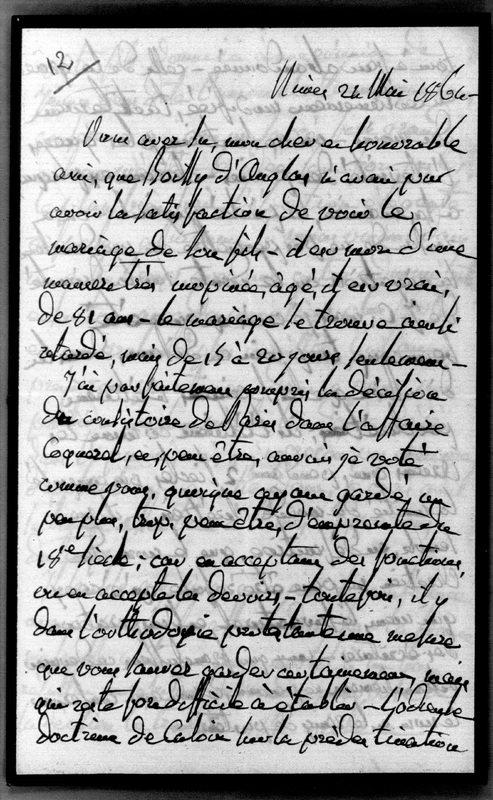 12
Nimes 24 Mai 1864
Vous avez lu, mon cher et honorable
ami, que Boissy d'Anglas n'avait pu
avoir la satisfaction de voir le
mariage de son fils - il est mort d'une
manière très inopinée, âgé, il est vrai,
de 81 ans - le mariage se trouve ainsi
retardé, mais de 15 à 20 jours seulement -
J'ai parfaitement compris la décision
du consistoire de Paris dans l'affaire
Coquerel, et, peut être, aurais je voté
comme vous, quoique ayant gardé, un
peu plus, trop peut être, d'empreinte du
18e siècle; car en acceptant des fonctions,
on en accepte les devoirs - toutefois, il y a
dans l'orthodoxie protestante une mesure
que vous savez garder certainement, mais
qui reste fort difficile à établir -
doctrine de Calvin sur la prédestination